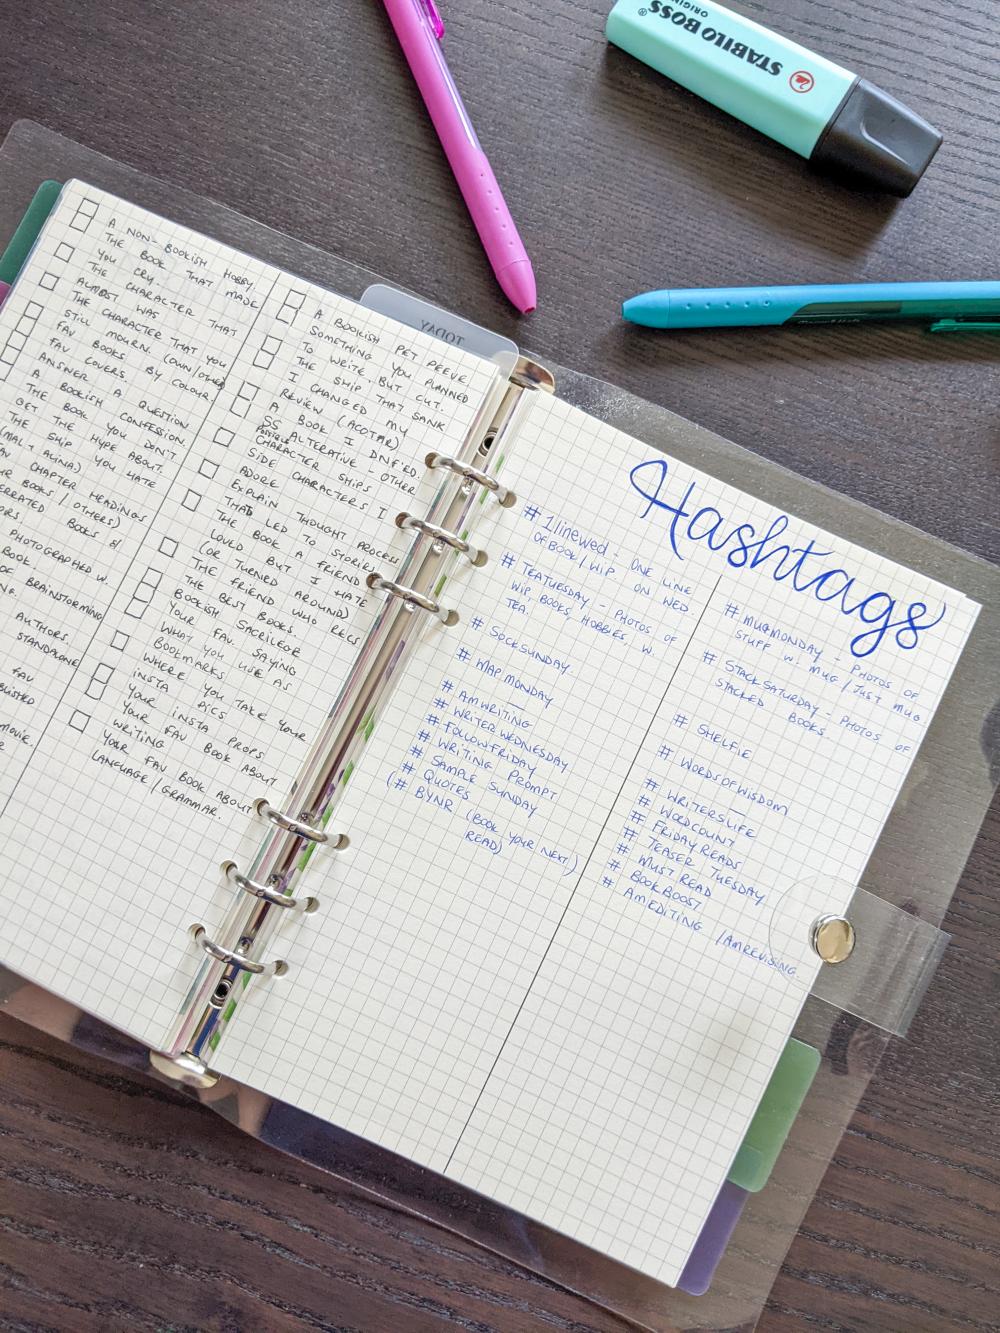 STABILO BOSS®
ORIGINAL
TODAY
A NON-BOOKISH HOBBY.
THE BOOK THAT MADE
YOU CRY.
THE CHARACTER THAT
ALMOST WAS
THE CHARACTER THAT YOU
STILL MOURN. (OWN/OTHER)
FAV BOOKS BY COLOUR.
FAV COVERS
ANSWER A QUESTION
A BOOKISH CONFESSION.
THE BOOK YOU DON'T
GET THE HYPE ABOUT.
THE SHIP YOU HATE
(MAL + ALINA)
CHAPTER HEADINGS
BOOKS / OTHERS)
BOOKS &
PHOTOGRAPHED W.
BOOK
OF BRAINSTORMING
AUTHORS.
STANDALONE
FAV
MOVIE.
A BOOKISH PET PEEVE
SOMETHING YOU PLANNED
TO WRITE, BUT CUT.
THE SHIP THAT SANK
I CHANGED MY
REVIEW (ACOTAR)
A BOOK I DNF'ED.
SS ALTERATIVE - OTHER
POSSIBLE
CHARACTER SHIPS
SIDE CHARACTERS I
ADORE
EXPLAIN THOUGHT PROCESS
THAT LED TO STORIES
THE BOOK A FRIEND
LOVED BUT I HATE
(OR TURNED AROUND)
THE FRIEND WHO RECS
THE BEST BOOKS.
BOOKISH SACRILEGE
YOUR FAV SAYING
WHAT YOU USE AS
BOOKMARKS
WHERE YOU TAKE YOUR
INSTA PICS.
YOUR INSTA PROPS
YOUR FAV BOOK ABOUT
WRITING
YOUR FAV BOOK ABOUT
LANGUAGE / GRAMMAR.
Hashtags
# 1linewed - ONE LINE
OF BOOK/WIP ON WED.
# TEATUESDAY - PHOTOS OF
WIP, BOOKS, HOBBIES, W.
TEA.
# SOCKSUNDAY
# MAP MONDAY
# AMWRITING
# WRITERWEDNESDAY
# FOLLOWFRIDAY
# WRITING PROMPT
# SAMPLE SUNDAY
# QUOTES
(# BYNR (BOOK YOUR NEXT
READ)
)
# MUGMONDAY - PHOTOS OF
STUFF W. MUG / JUST MUG
# STACKSATURDAY - PHOTOS OF
STACKED BOOKS.
# SHELFIE
# WORDSOFWISDOM
# WRITERSLIFE
# WORDCOUNT
# FRIDAYREADS
# TEASER TUESDAY
# MUST READ
# BOOKBOOST
# AMEDITING /AMREVISING.